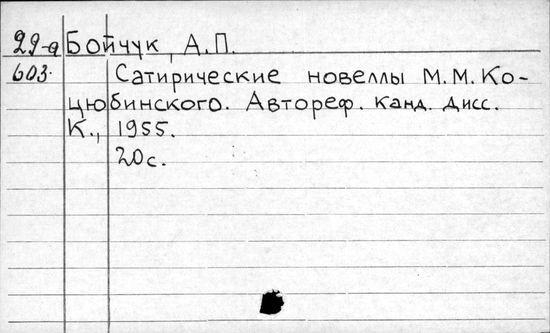 29-а Бойчук, А.П.
603. Сатирические новеллы М.М. Ко-
цюбинского. Автореф. канд. дисс.
К., 1955.
20с.